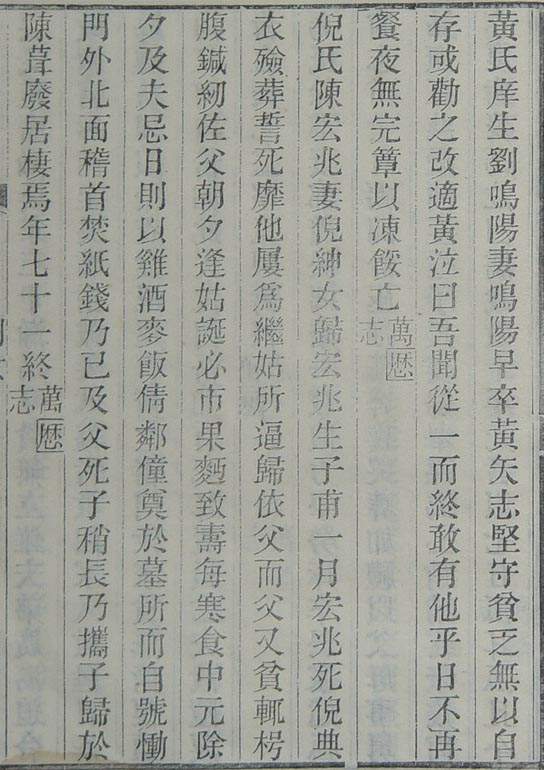 黃氏庠生劉鳴陽妻鳴陽早卒黃矢志堅守貧乏無以自
存或勸之改適黃泣曰吾聞從一而終敢有他乎日不再
餐夜無完簟以凍餒亡萬曆志
倪氏陳宏兆妻倪紳女歸宏兆生子甫一月宏兆死倪典
衣殮葬誓死靡他屢爲繼姑所逼歸依父而父又貧輒枵
腹鍼紉佐父朝夕逢姑誕必市果麪致壽每寒食中元除
夕及夫忌日則以雞酒麥飯倩鄰僮奠於墓所而自號慟
門外北面稽首焚紙錢乃已及父死子稍長乃攜子歸於
陳葺廢居棲焉年七十一終萬曆志